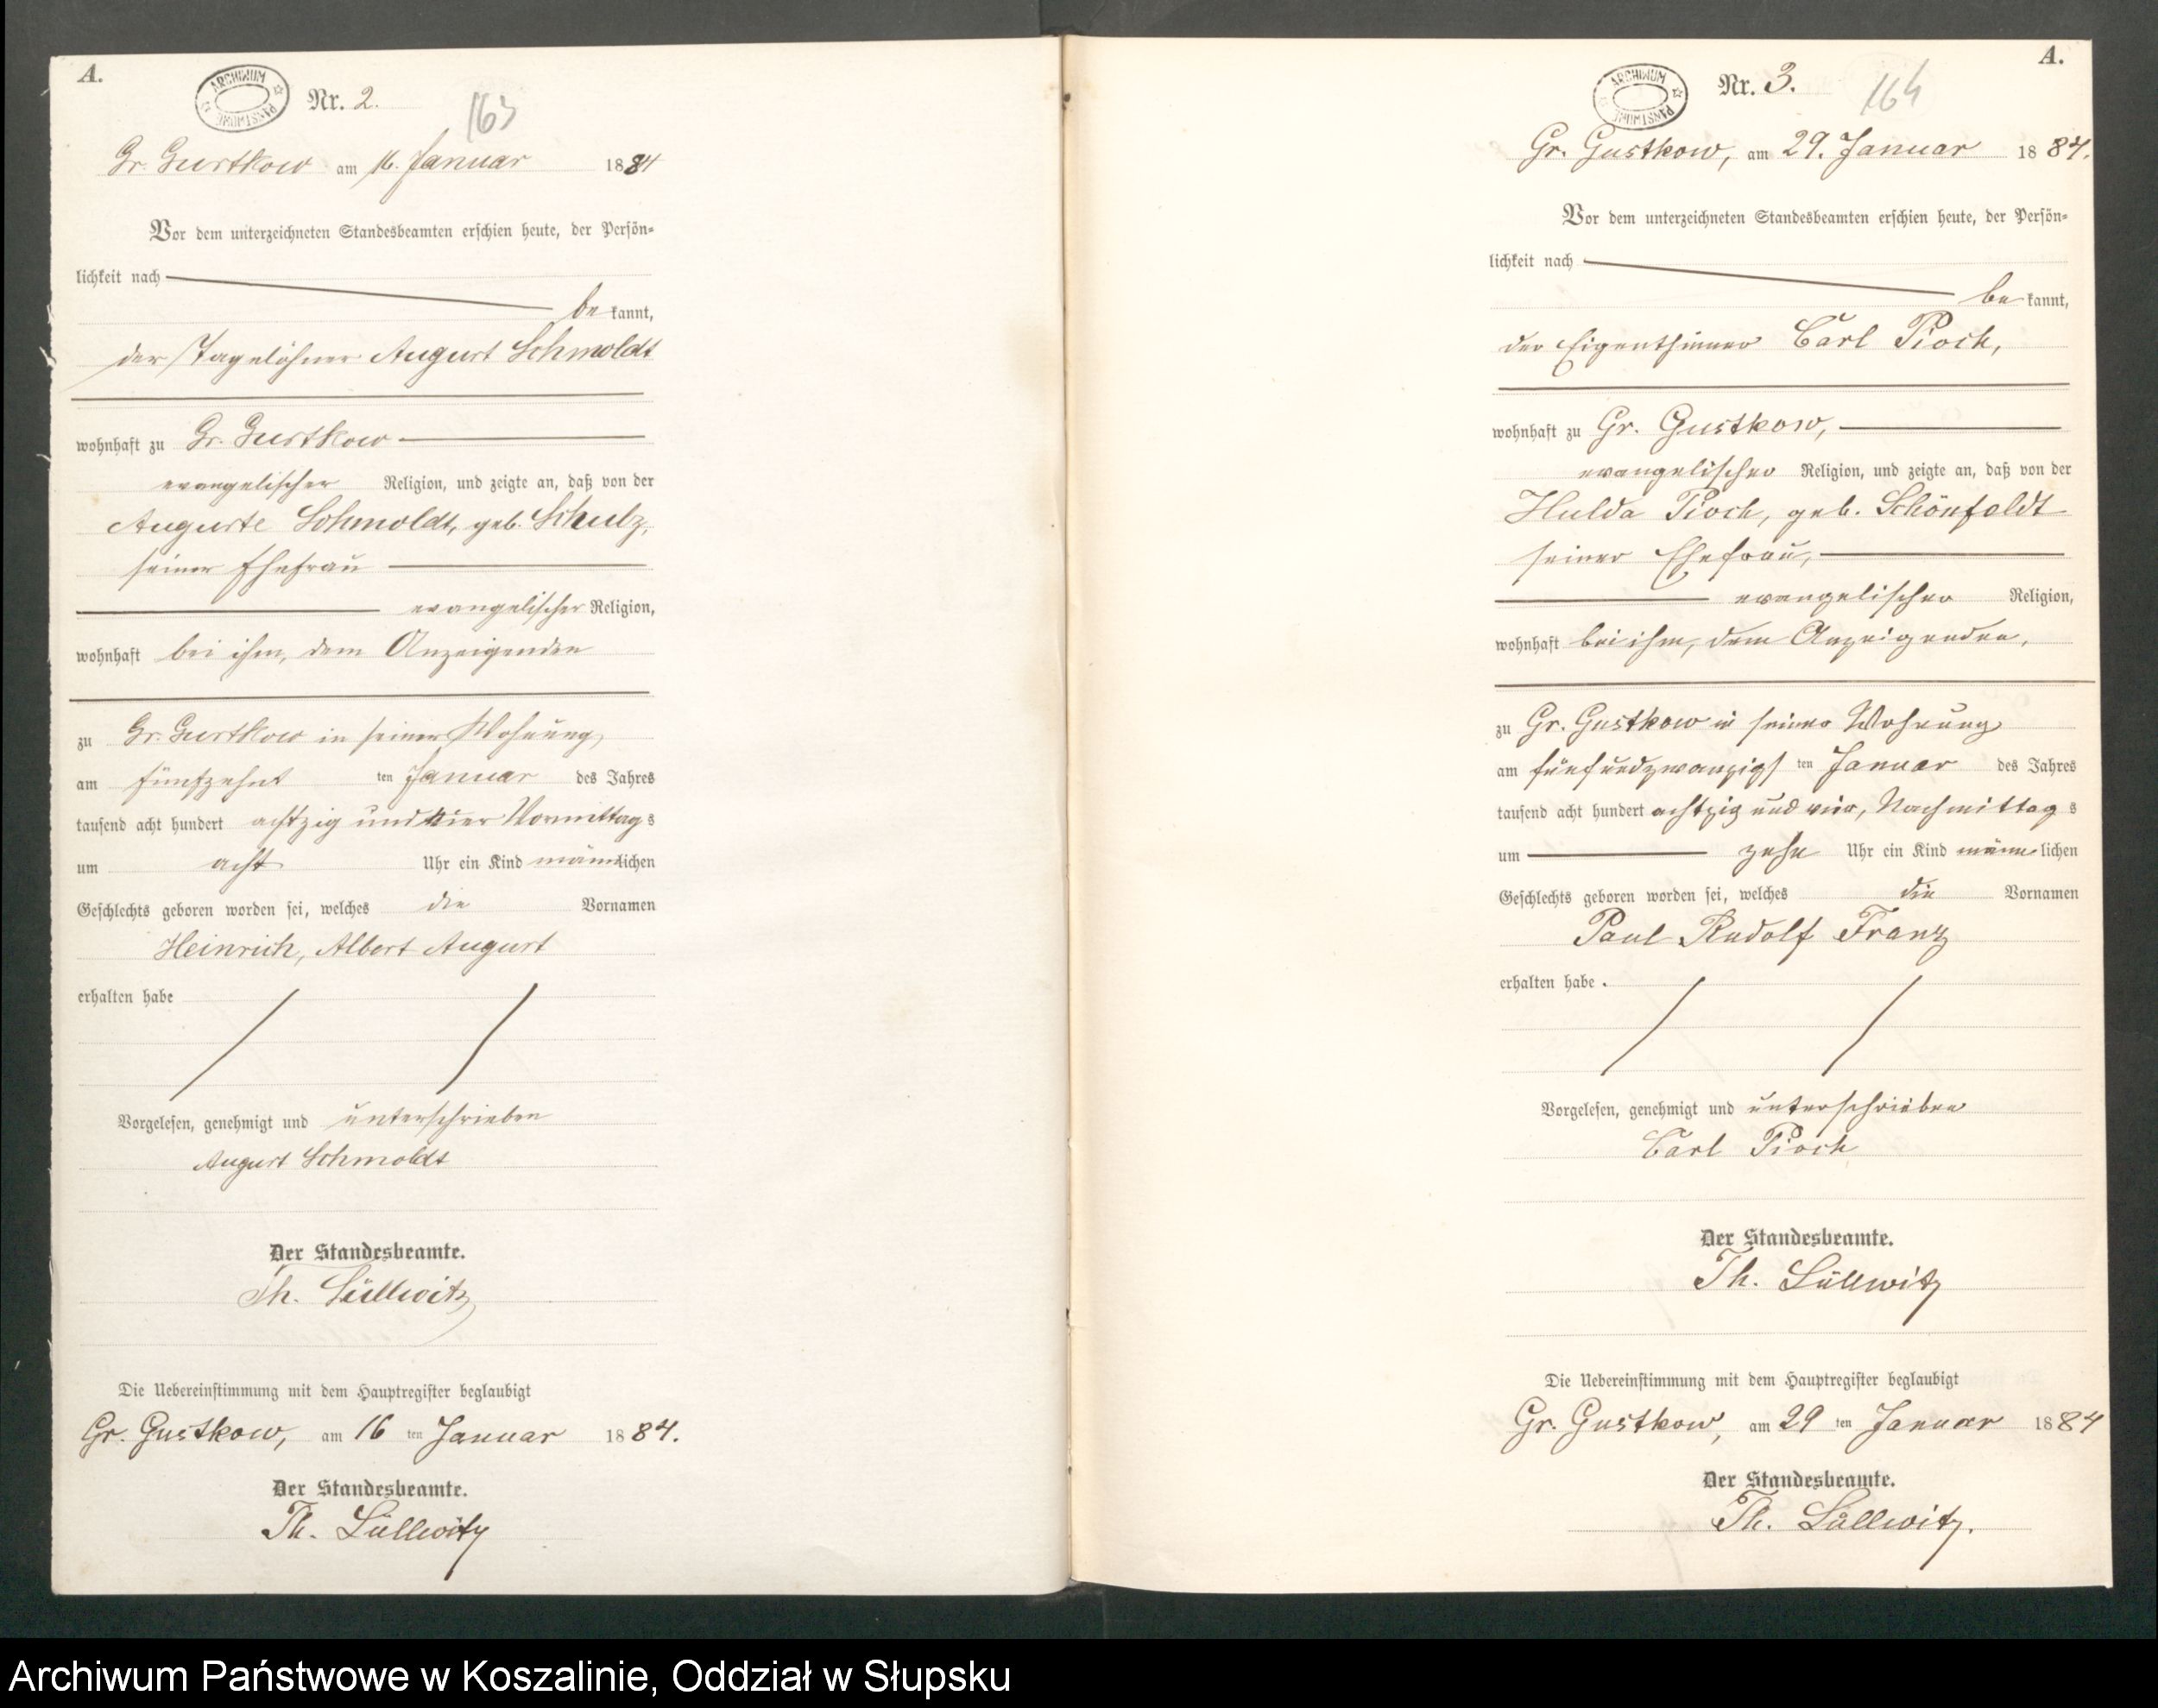 A.
ARCHIWUM PAŃSTWOWE
Nr. 2.
163
Gr. Gustkow am 16. Januar 1884
Vor dem unterzeichneten Standesbeamten erschien heute, der Persön-
lichkeit nach
be kannt,
der Tagelöhner August Schmoldt
wohnhaft zu Gr. Gustkow
evangelischer Religion, und zeigte an, daß von der
Auguste Schmoldt, geb. Schulz,
seiner Ehefrau
evangelischer Religion,
wohnhaft bei ihm, dem Anzeigenden
zu Gr. Gustkow in seiner Wohnung,
am fünfzehnt ten Januar des Jahres
tausend acht hundert achtzig und vier Vormittag s
um acht Uhr ein Kind männlichen
Geschlechts geboren worden sei, welches die Vornamen
Heinrich, Albert August
erhalten habe
Vorgelesen, genehmigt und unterschrieben
August Schmoldt
Der Standesbeamte.
Th. Lüllwitz
Die Uebereinstimmung mit dem Hauptregister beglaubigt
Gr. Gustkow, am 16 ten Januar 1884.
Der Standesbeamte.
Th. Lüllwitz
A.
ARCHIWUM PAŃSTWOWE
Nr. 3.
164
Gr. Gustkow, am 29. Januar 1884.
Vor dem unterzeichneten Standesbeamten erschien heute, der Persön-
lichkeit nach
be kannt,
der Eigenthümer Carl Pioch,
wohnhaft zu Gr. Gustkow,
evangelischer Religion, und zeigte an, daß von der
Hulda Pioch, geb. Schönfeldt
seiner Ehefrau,
evangelischer Religion,
wohnhaft bei ihm, dem Anzeigenden,
zu Gr. Gustkow in seiner Wohnung
am fünfundzwanzigs ten Januar des Jahres
tausend acht hundert achtzig und vier, Nachmittag s
um zehn Uhr ein Kind männ lichen
Geschlechts geboren worden sei, welches die Vornamen
Paul Rudolf Franz
erhalten habe .
Vorgelesen, genehmigt und unterschrieben
Carl Pioch
Der Standesbeamte.
Th. Lüllwitz
Die Uebereinstimmung mit dem Hauptregister beglaubigt
Gr. Gustkow, am 29 ten Januar 1884
Der Standesbeamte.
Th. Lüllwitz.
Archiwum Państwowe w Koszalinie, Oddział w Słupsku